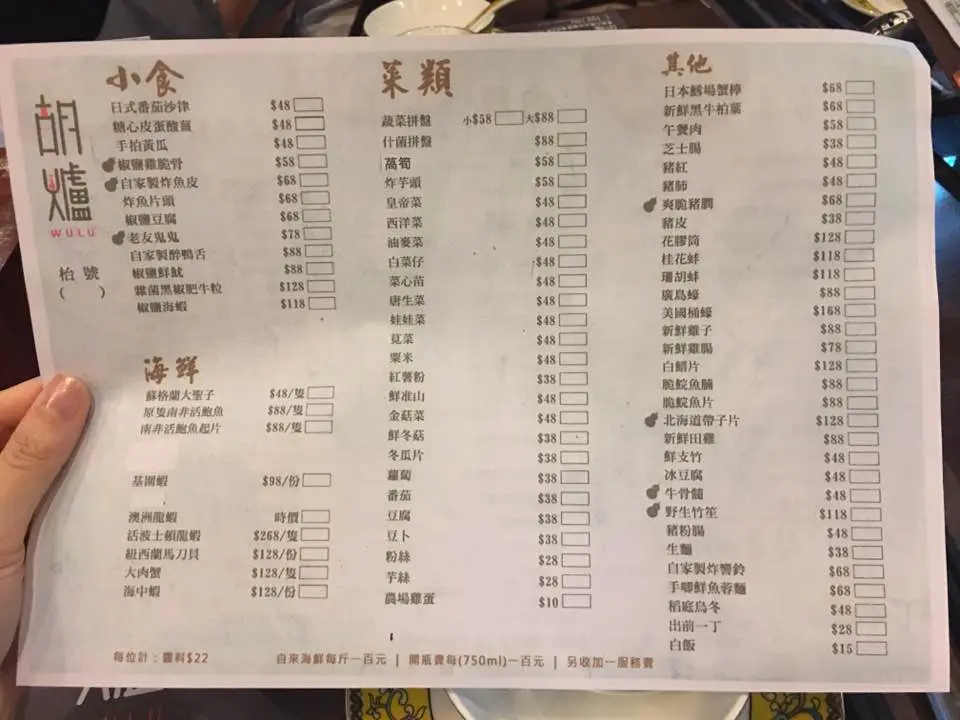 胡爐
WULU
枱號
( )
小食
日式番茄沙律 $48
糖心皮蛋酸薑 $48
手拍黃瓜 $48
椒鹽雞脆骨 $58
自家製炸魚皮 $68
炸魚片頭 $68
椒鹽豆腐 $68
老友鬼鬼 $78
自家製醉鴨舌 $88
椒鹽鮮魷 $88
雜菌黑椒肥牛粒 $128
椒鹽海蝦 $118
海鮮
蘇格蘭大聖子 $48/隻
原隻南非活鮑魚 $88/隻
南非活鮑魚起片 $88/隻
基圍蝦 $98/份
澳洲龍蝦 時價
活波士頓龍蝦 $268/隻
紐西蘭馬刀貝 $128/份
大肉蟹 $128/隻
海中蝦 $128/份
菜類
蔬菜拼盤 小$58 大$88
什菌拼盤 $88
萵筍 $58
炸芋頭 $58
皇帝菜 $48
西洋菜 $48
油麥菜 $48
白菜仔 $48
菜心苗 $48
唐生菜 $48
娃娃菜 $48
莧菜 $48
粟米 $48
紅薯粉 $38
鮮准山 $48
金菇菜 $48
鮮冬菇 $38
冬瓜片 $38
蘿蔔 $38
番茄 $38
豆腐 $38
豆卜 $38
粉絲 $28
芋絲 $28
農場雞蛋 $10
其他
日本鱈場蟹棒 $68
新鮮黑牛柏葉 $68
午餐肉 $58
芝士腸 $38
豬紅 $48
豬肺 $48
爽脆豬膶 $68
豬皮 $38
花膠筒 $128
桂花蚌 $118
珊胡蚌 $118
廣島蠔 $88
美國桶蠔 $168
新鮮雞子 $88
新鮮雞腸 $78
白鱔片 $128
脆鯇魚腩 $88
脆鯇魚片 $88
北海道帶子片 $128
新鮮田雞 $88
鮮支竹 $48
冰豆腐 $48
牛骨髓 $48
野生竹笙 $118
豬粉腸 $48
生麵 $38
自家製炸響鈴 $68
手唧鮮魚蓉麵 $68
稻庭烏冬 $48
出前一丁 $28
白飯 $15
每位計：醬料$22 自來海鮮每斤一百元 | 開瓶費每(750ml)一百元 | 另收加一服務費